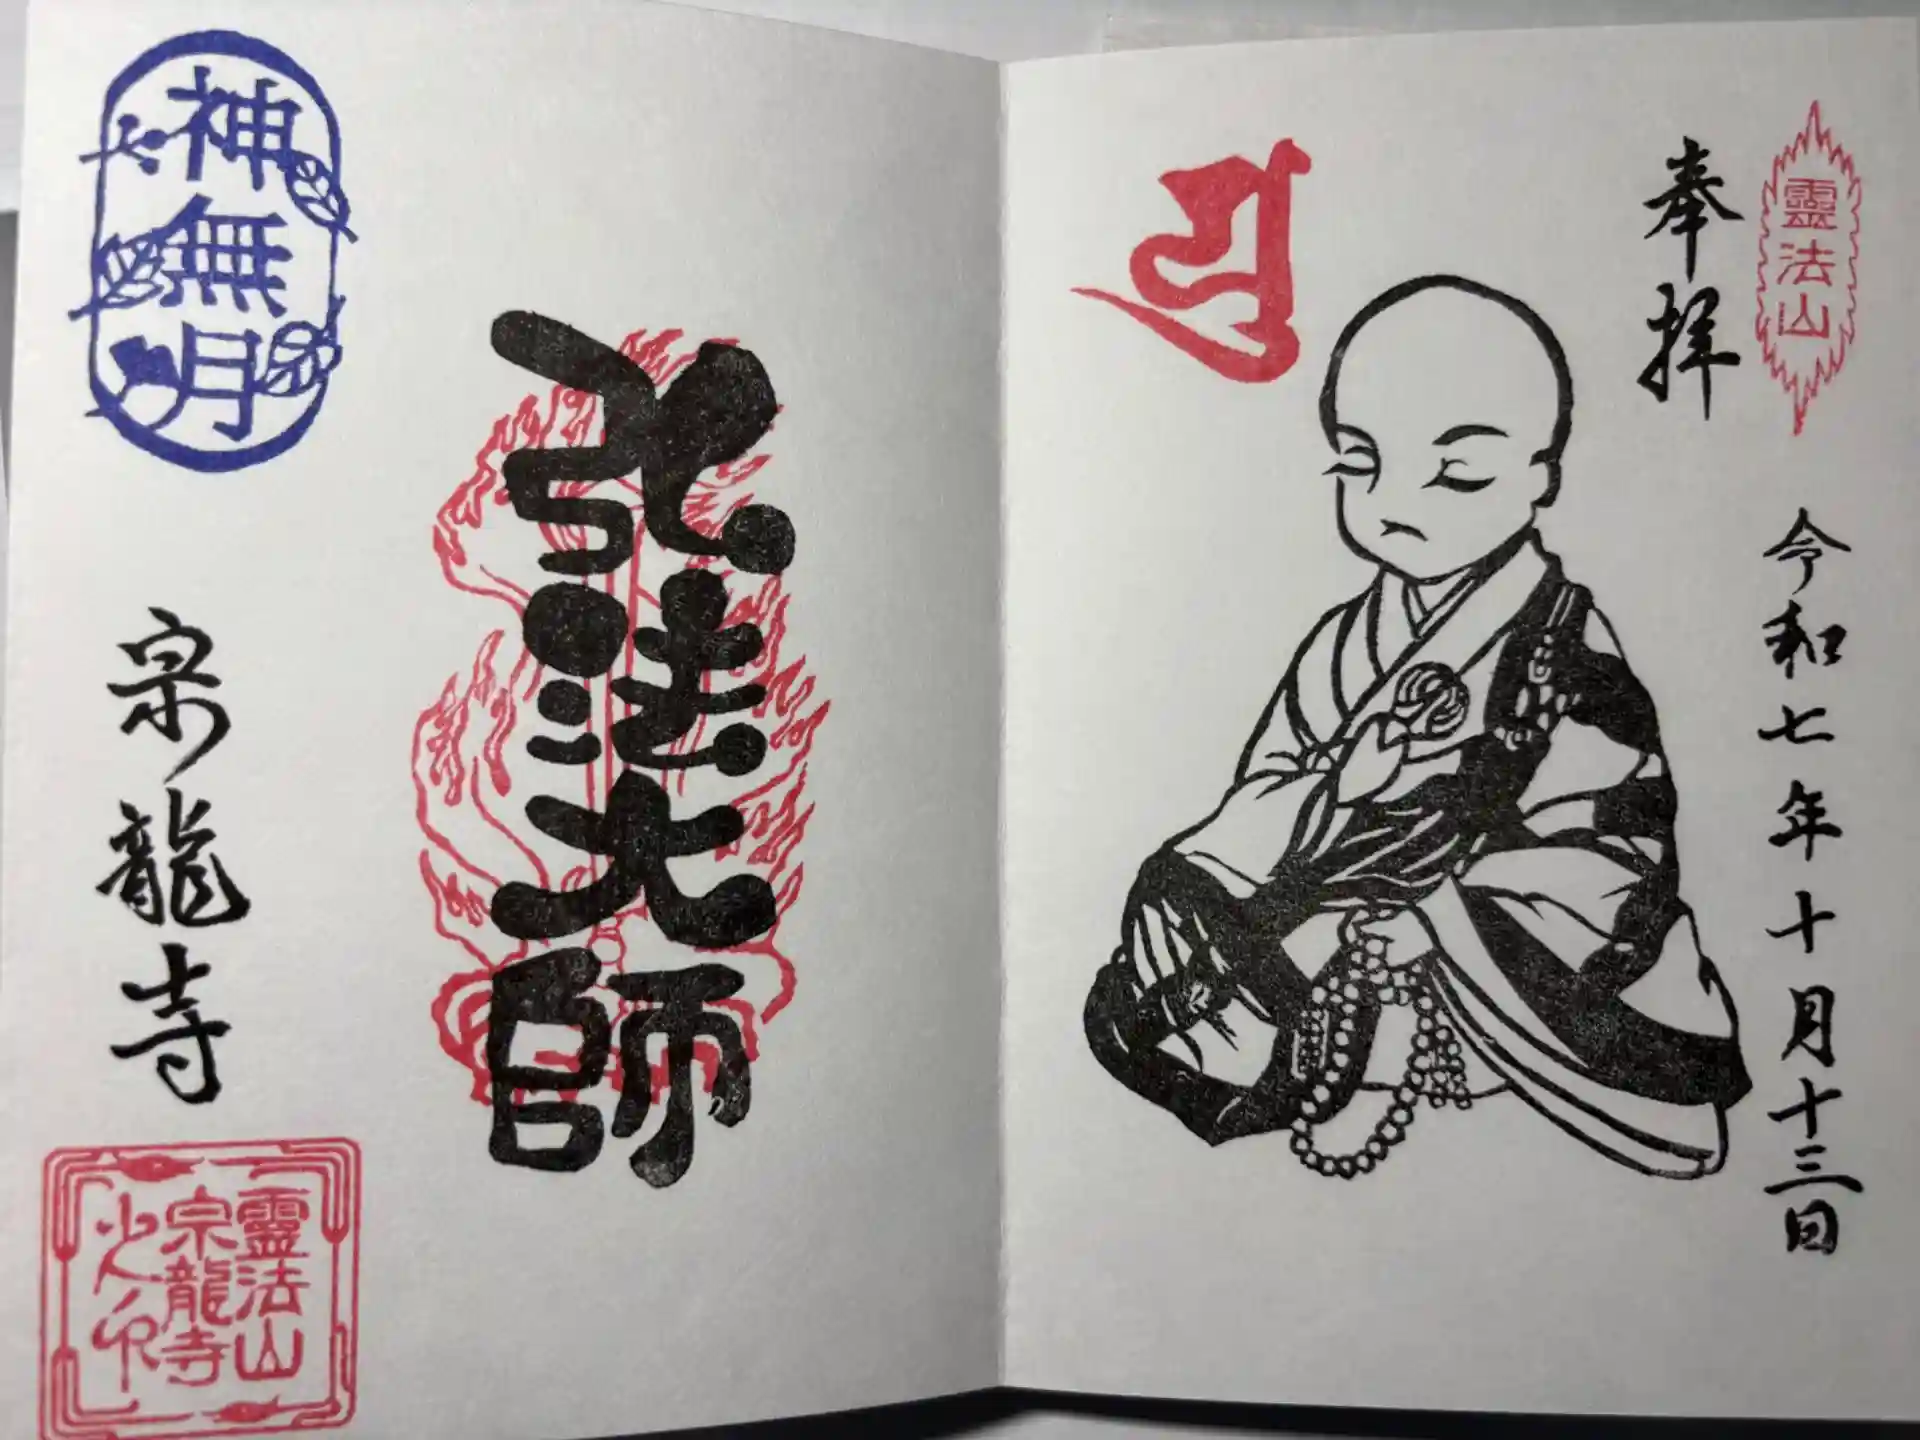 靈法山
奉拝
令和七年十月十三日
弘法大師
神無月
宗龍寺
靈法山
宗龍寺
之印